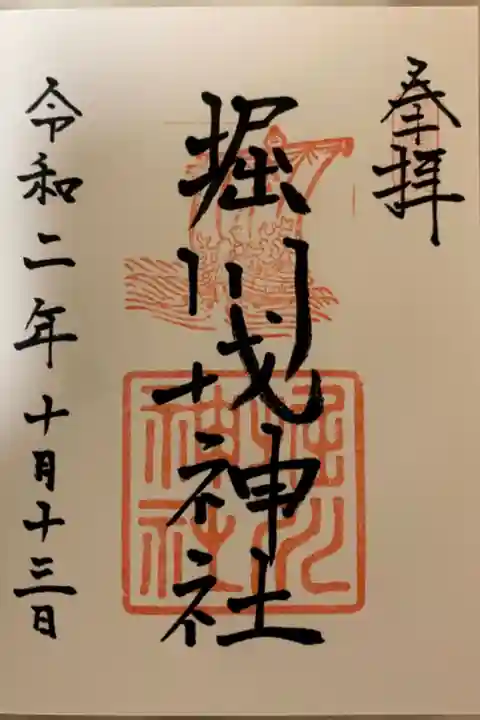 奉拝
堀川戎神社
堀川
神社
令和二年十月十三日